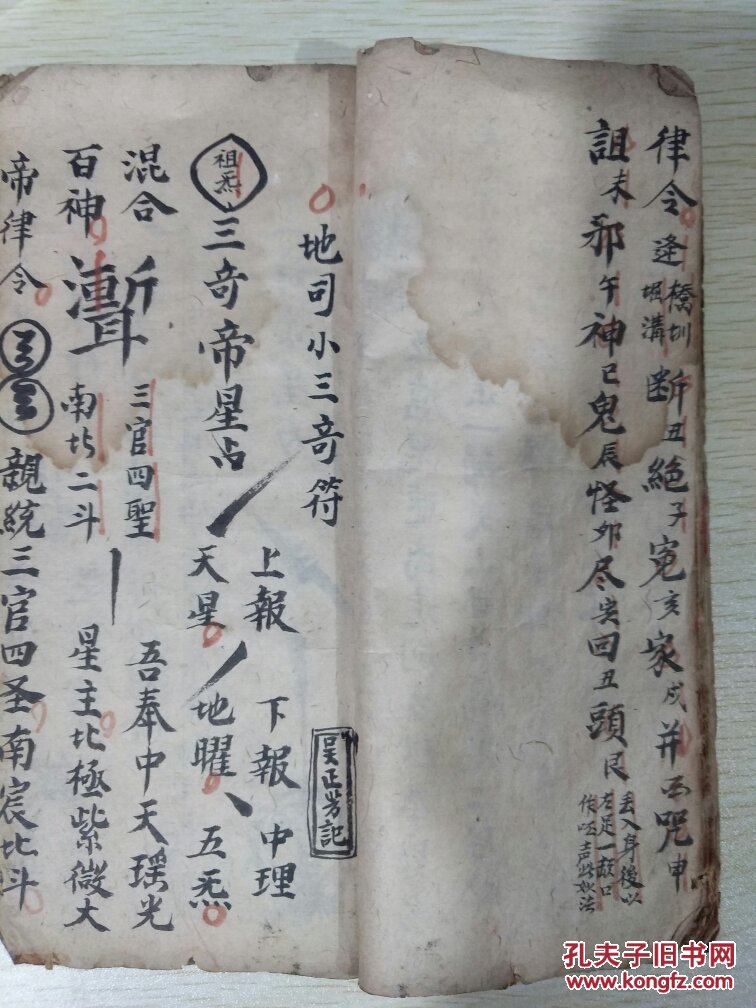 律令 逢橋圳堀溝 断丑絕子冤亥家戍并酉咒申
詛未邪午神巳鬼辰怪卯尽寅回丑頭艮 丢入身後以左足一顿口作呸声此如法
地司小三奇符
吴正芳記
祖炁 三奇帝星占
上報 下報 中理
天星 地曜 五炁
混合 三官四聖 吾奉中天瑤光
百神 南北二斗 星主北極紫微大
帝律令 親統三官四圣南宸北斗
孔夫子旧书网
www.kongfz.com